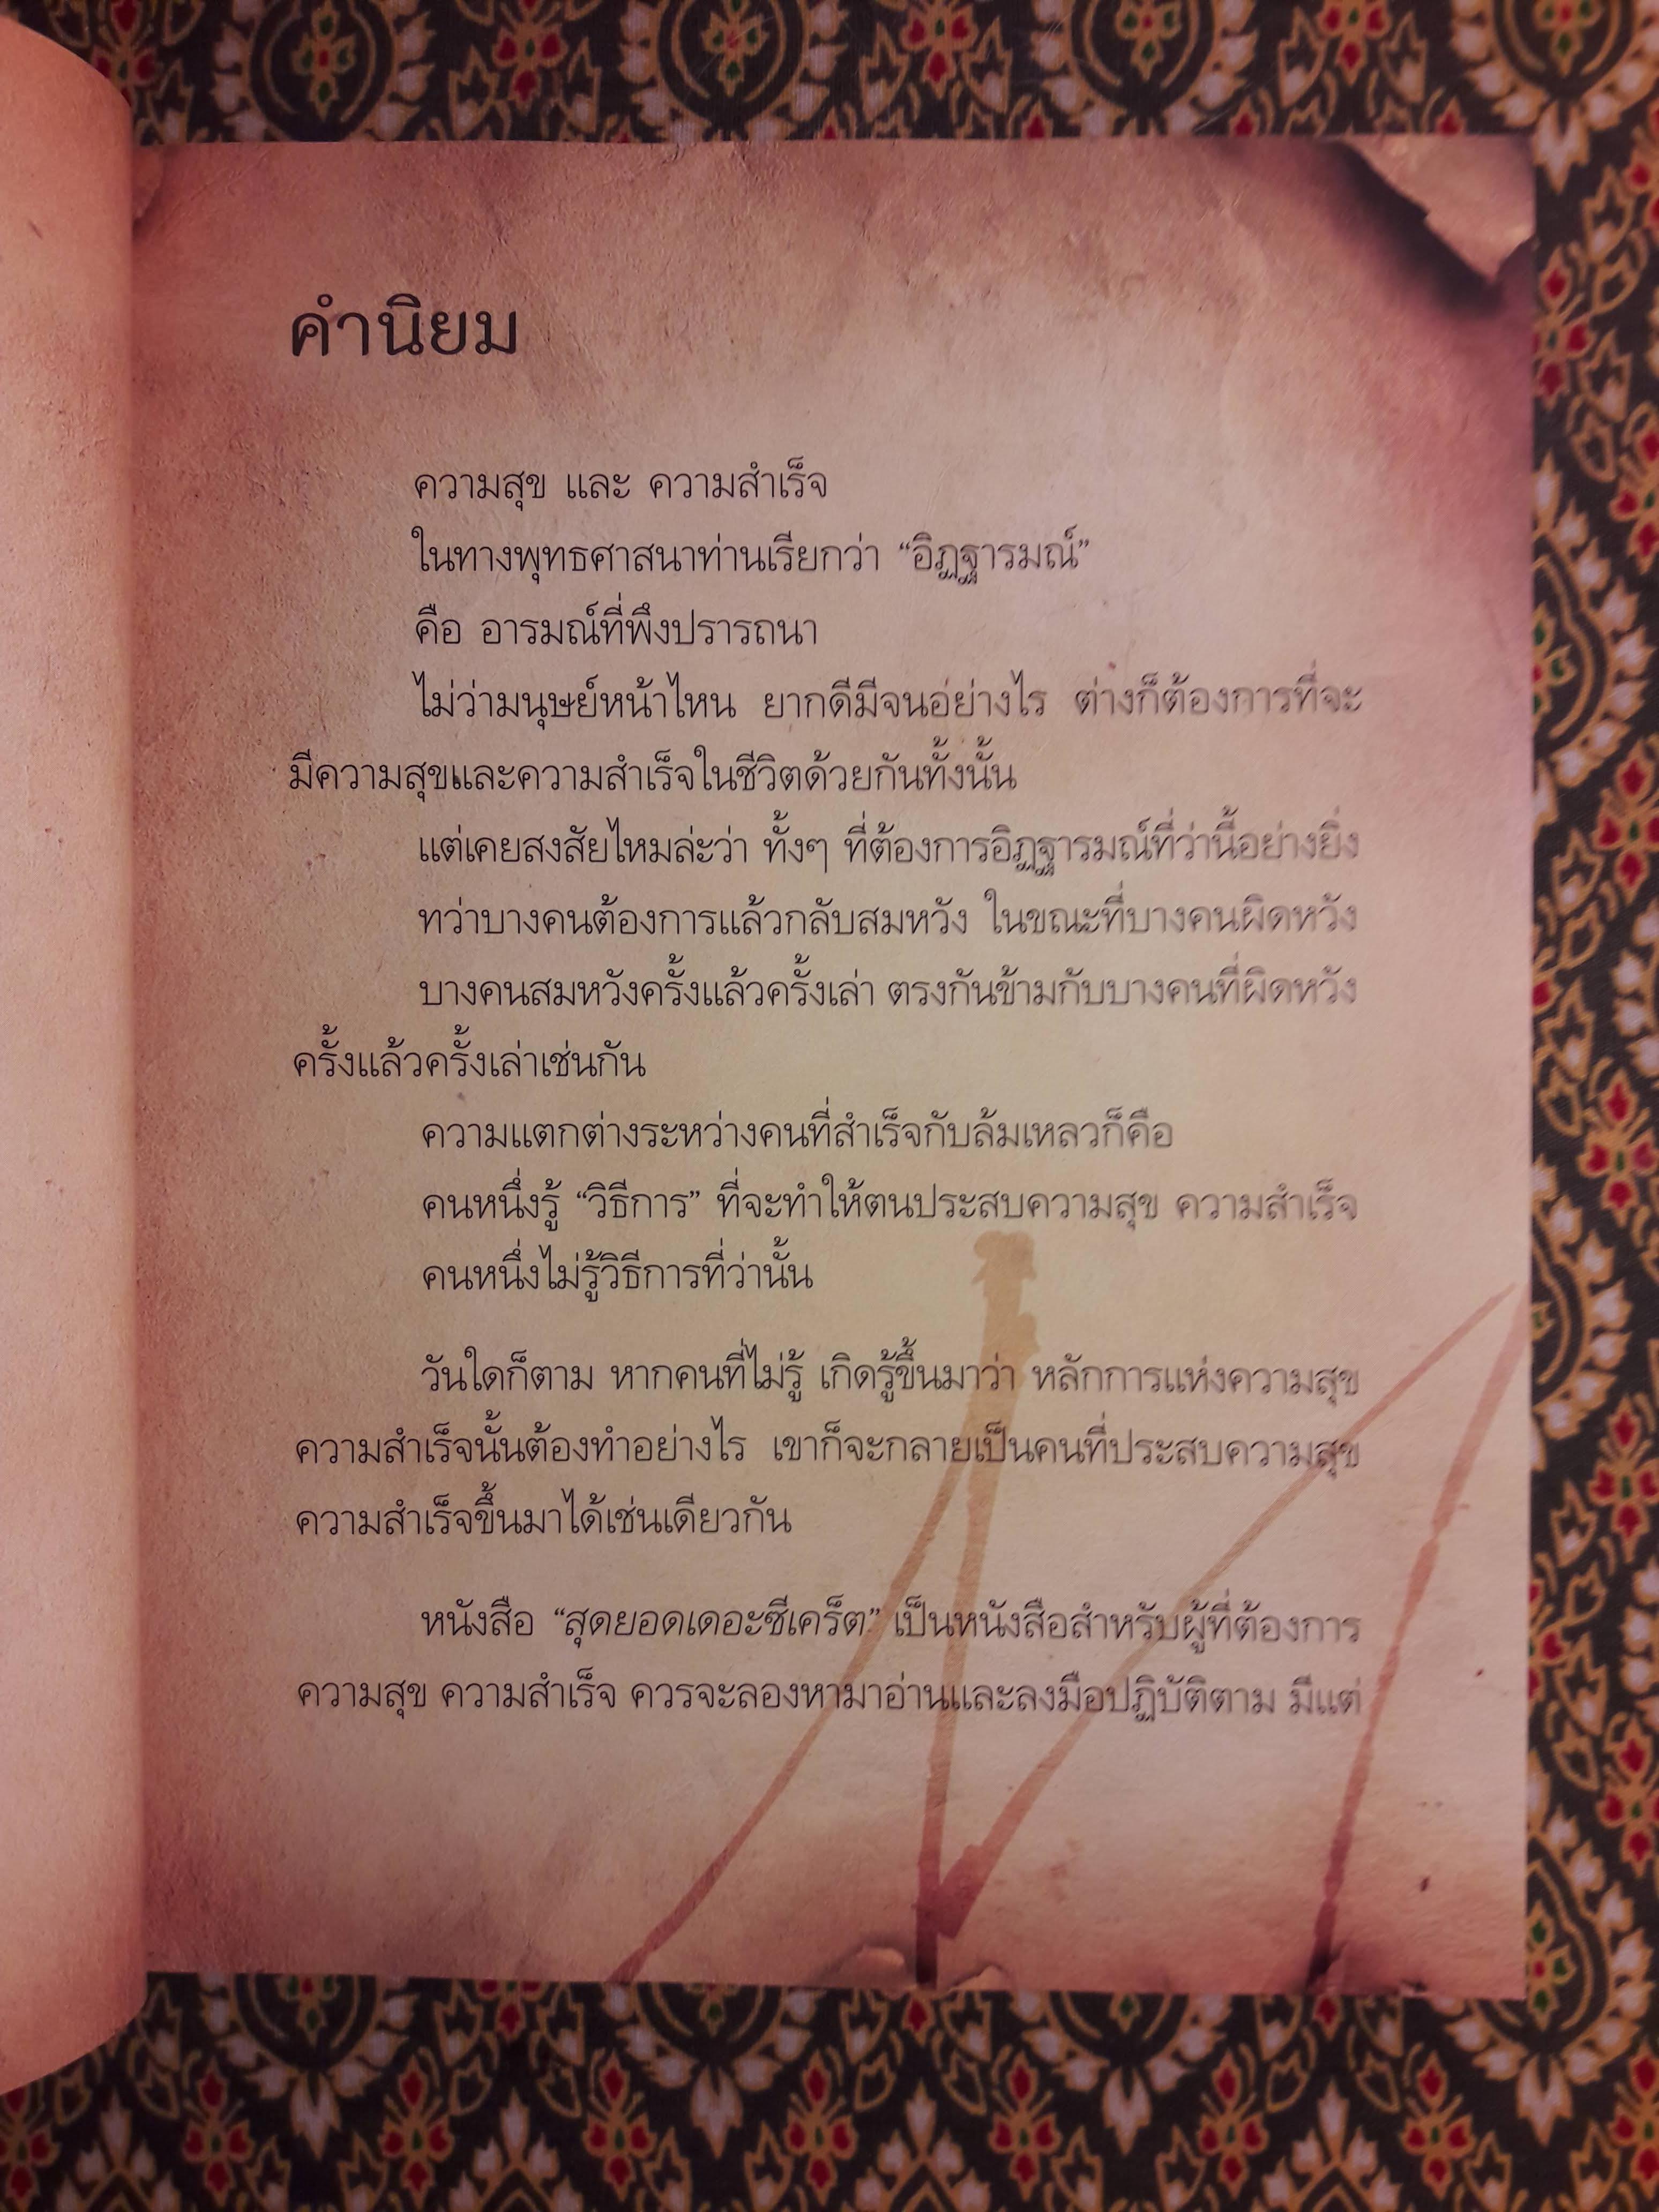 คำนิยม
ความสุข และ ความสำเร็จ
ในทางพุทธศาสนาท่านเรียกว่า “อิฏฐารมณ์”
คือ อารมณ์ที่พึงปรารถนา
ไม่ว่ามนุษย์หน้าไหน ยากดีมีจนอย่างไร ต่างก็ต้องการที่จะ
มีความสุขและความสำเร็จในชีวิตด้วยกันทั้งนั้น
แต่เคยสงสัยไหมล่ะว่า ทั้งๆ ที่ต้องการอิฏฐารมณ์ที่ว่านี้อย่างยิ่ง
ทว่าบางคนต้องการแล้วกลับสมหวัง ในขณะที่บางคนผิดหวัง
บางคนสมหวังครั้งแล้วครั้งเล่า ตรงกันข้ามกับบางคนที่ผิดหวัง
ครั้งแล้วครั้งเล่าเช่นกัน
ความแตกต่างระหว่างคนที่สำเร็จกับล้มเหลวก็คือ
คนหนึ่งรู้ “วิธีการ” ที่จะทำให้ตนประสบความสุข ความสำเร็จ
คนหนึ่งไม่รู้วิธีการที่ว่านั้น
วันใดก็ตาม หากคนที่ไม่รู้ เกิดรู้ขึ้นมาว่า หลักการแห่งความสุข
ความสำเร็จนั้นต้องทำอย่างไร เขาก็จะกลายเป็นคนที่ประสบความสุข
ความสำเร็จขึ้นมาได้เช่นเดียวกัน
หนังสือ “สุดยอดเดอะซีเคร็ต” เป็นหนังสือสำหรับผู้ที่ต้องการ
ความสุข ความสำเร็จ ควรจะลองหามาอ่านและลงมือปฏิบัติตาม มีแต่